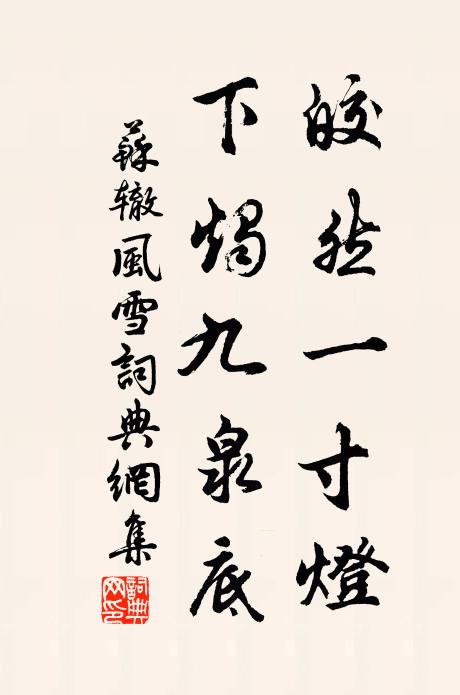 皎然一寸燈
下燭九泉底
蘇辙風雪詞典網集